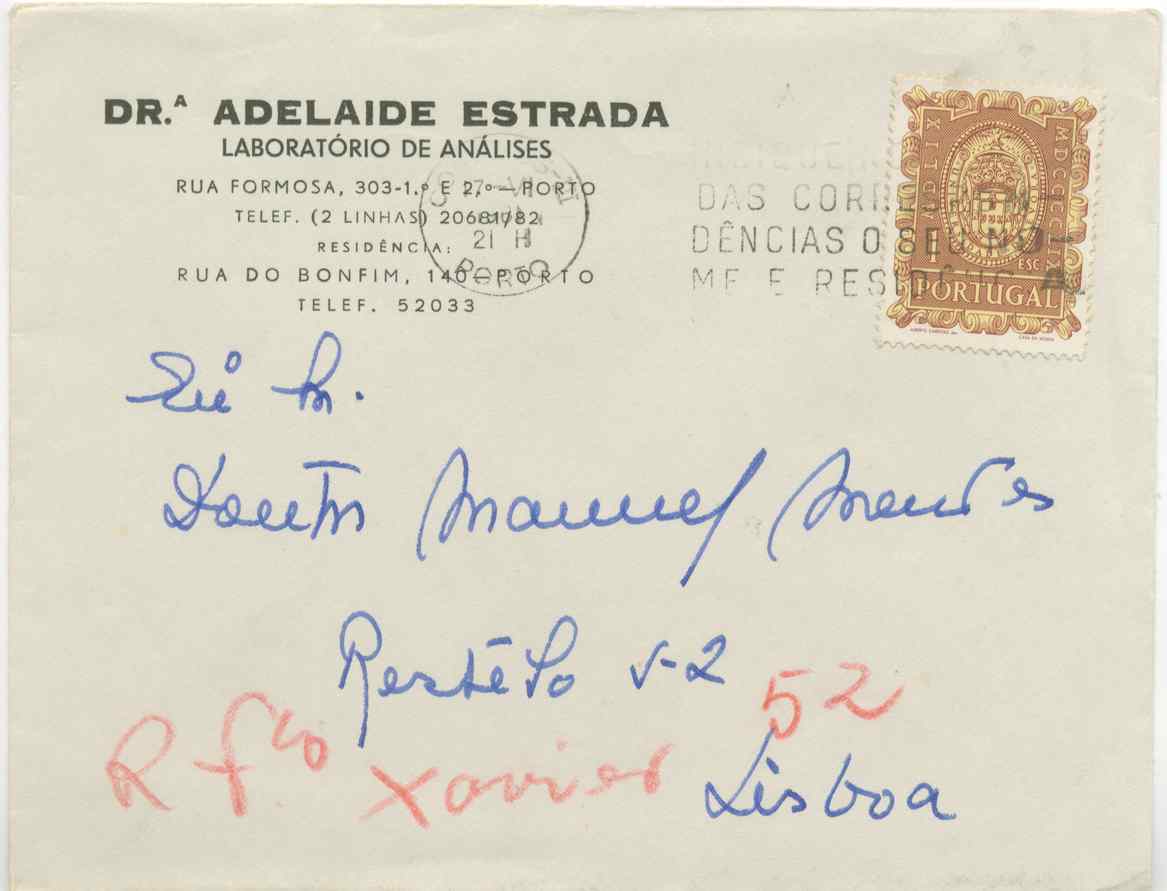 DR.ᴬ ADELAIDE ESTRADA
LABORATÓRIO DE ANÁLISES
RUA FORMOSA, 303-1.º E 2.º—PORTO
TELEF. (2 LINHAS) 20681/82
RESIDÊNCIA:
RUA DO BONFIM, 140—PORTO
TELEF. 52033
21 H
PORTO
DAS CORRESPON-
DÊNCIAS O SEU NO-
ME E RESIDÊNCIA
MDCCCLIX
1 ESC.
PORTUGAL
Manuel Mendes
Restêlo
52
R. Fco Xavier
Lisboa